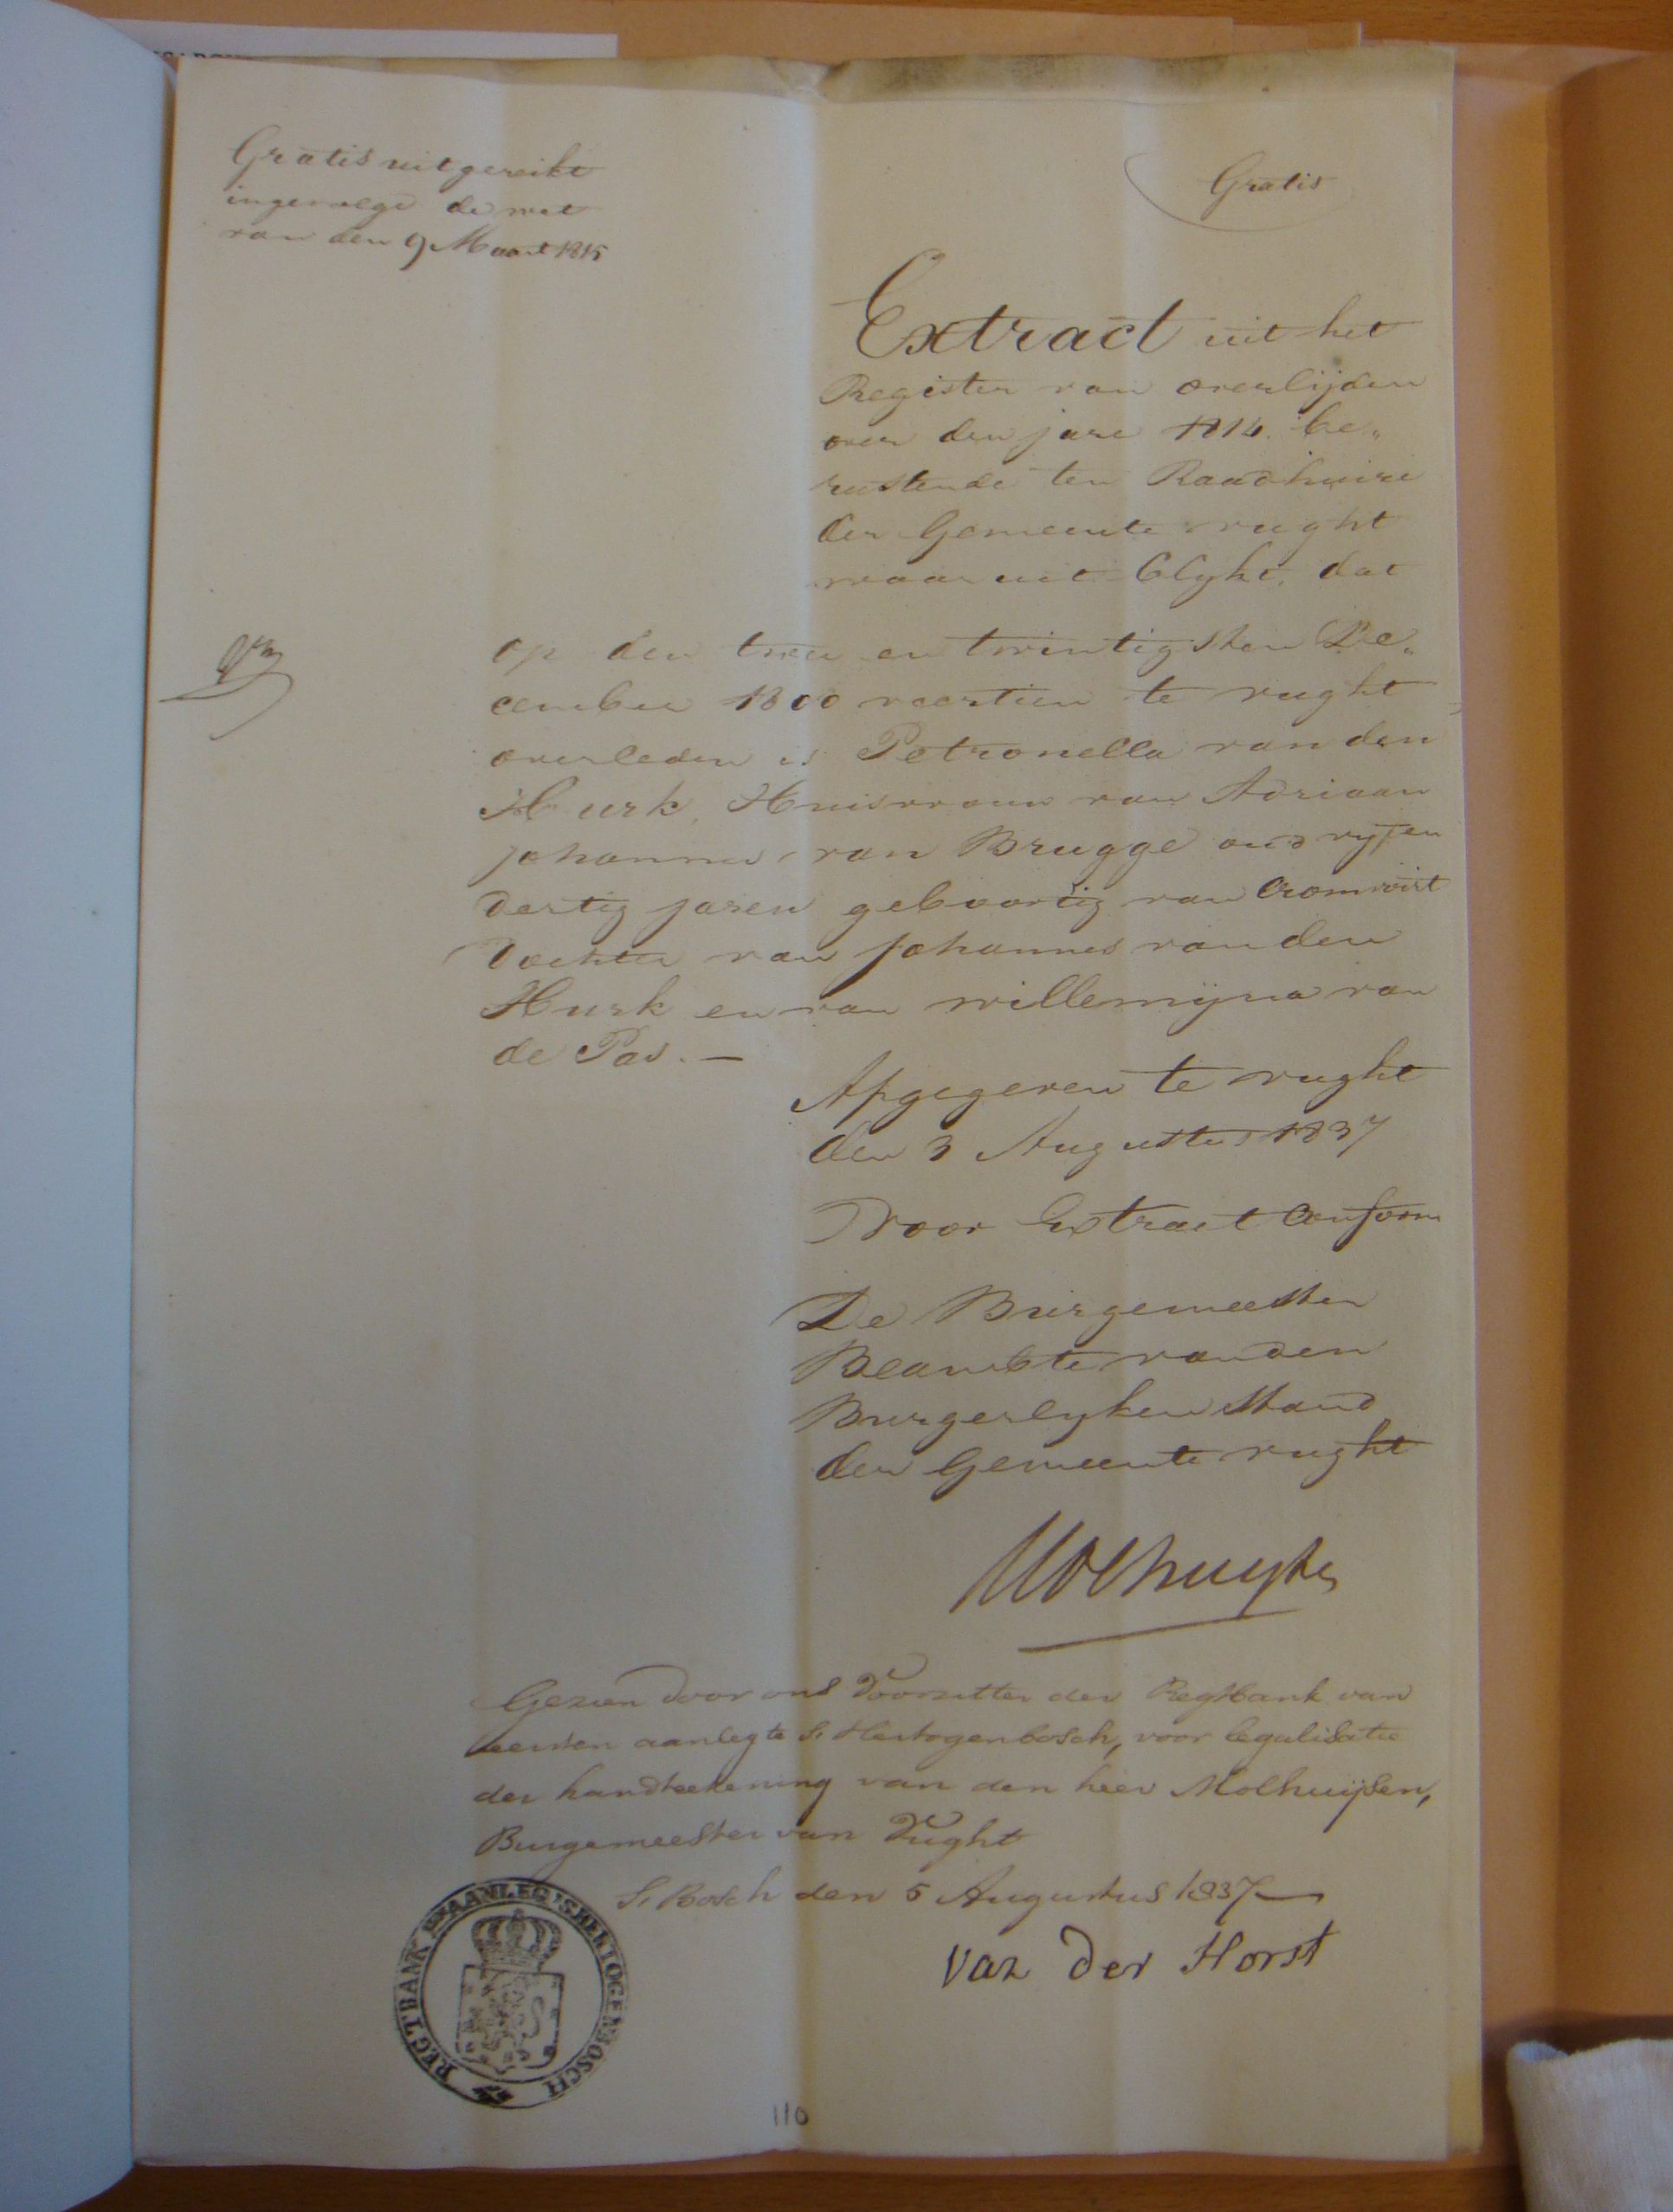 Gratis uitgereikt
ingevolge de wet
van den 9 Maart 1815
Gratis
Extract uit het
Register van overlijden
over den jare 1814. be„
rustende ten Raadhuise
der Gemeente vught
waar uit blykt, dat
op den twee en twintigsten De„
cember 1800 veertien te vught
overleden is Petronella van den
Hurk, Huisvrouw van Adriaan
johannes van Brugge oud vyf en
dertig jaren geboortig van Cromvoirt
dochter van johannes van den
Hurk en van willemijna van
de Pas. —
Afgegeven te vught
den 3 Augustus 1837
Voor Extract Conform
De Burgemeester
Beambte van den
Burgerlyken Stand
der Gemeente vught
Molhuysen
Gezien door ons Voorzitter der Regtbank van
eersten aanleg te S. Hertogenbosch, voor legalisatie
der handteekening van den heer Molhuijsen,
Burgemeester van Vught
S. Bosch den 5 Augustus 1837
van der Horst
REGTBANK AANLEG 'S HERTOGENBOSCH
110